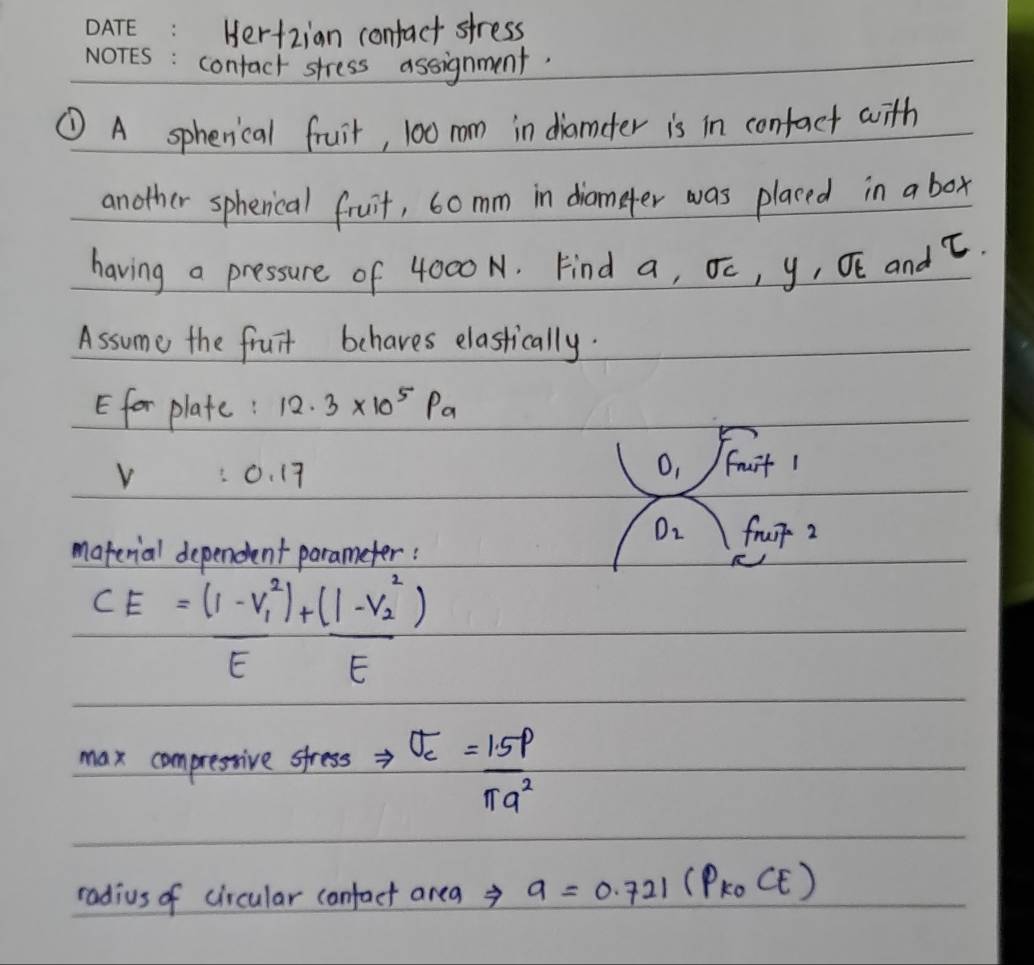 DATE : Hertzian contact stress
NOTES : contact stress assignment.
① A spherical fruit, 100 mm in diameter is in contact with
another spherical fruit, 60 mm in diameter was placed in a box
having a pressure of 4000 N. Find a, σc, y, σt and τ.
Assume the fruit behaves elastically.
E for plate : 12.3 × 10⁵ Pa
V : 0.17
D₁ Fruit 1
D₂ fruit 2
material dependent parameter :
CE = (1 - V₁²) + (1 - V₂²)
E E
max compressive stress ⇒ σc = 1.5P
πa²
radius of circular contact area ⇒ a = 0.721 (PKD CE)